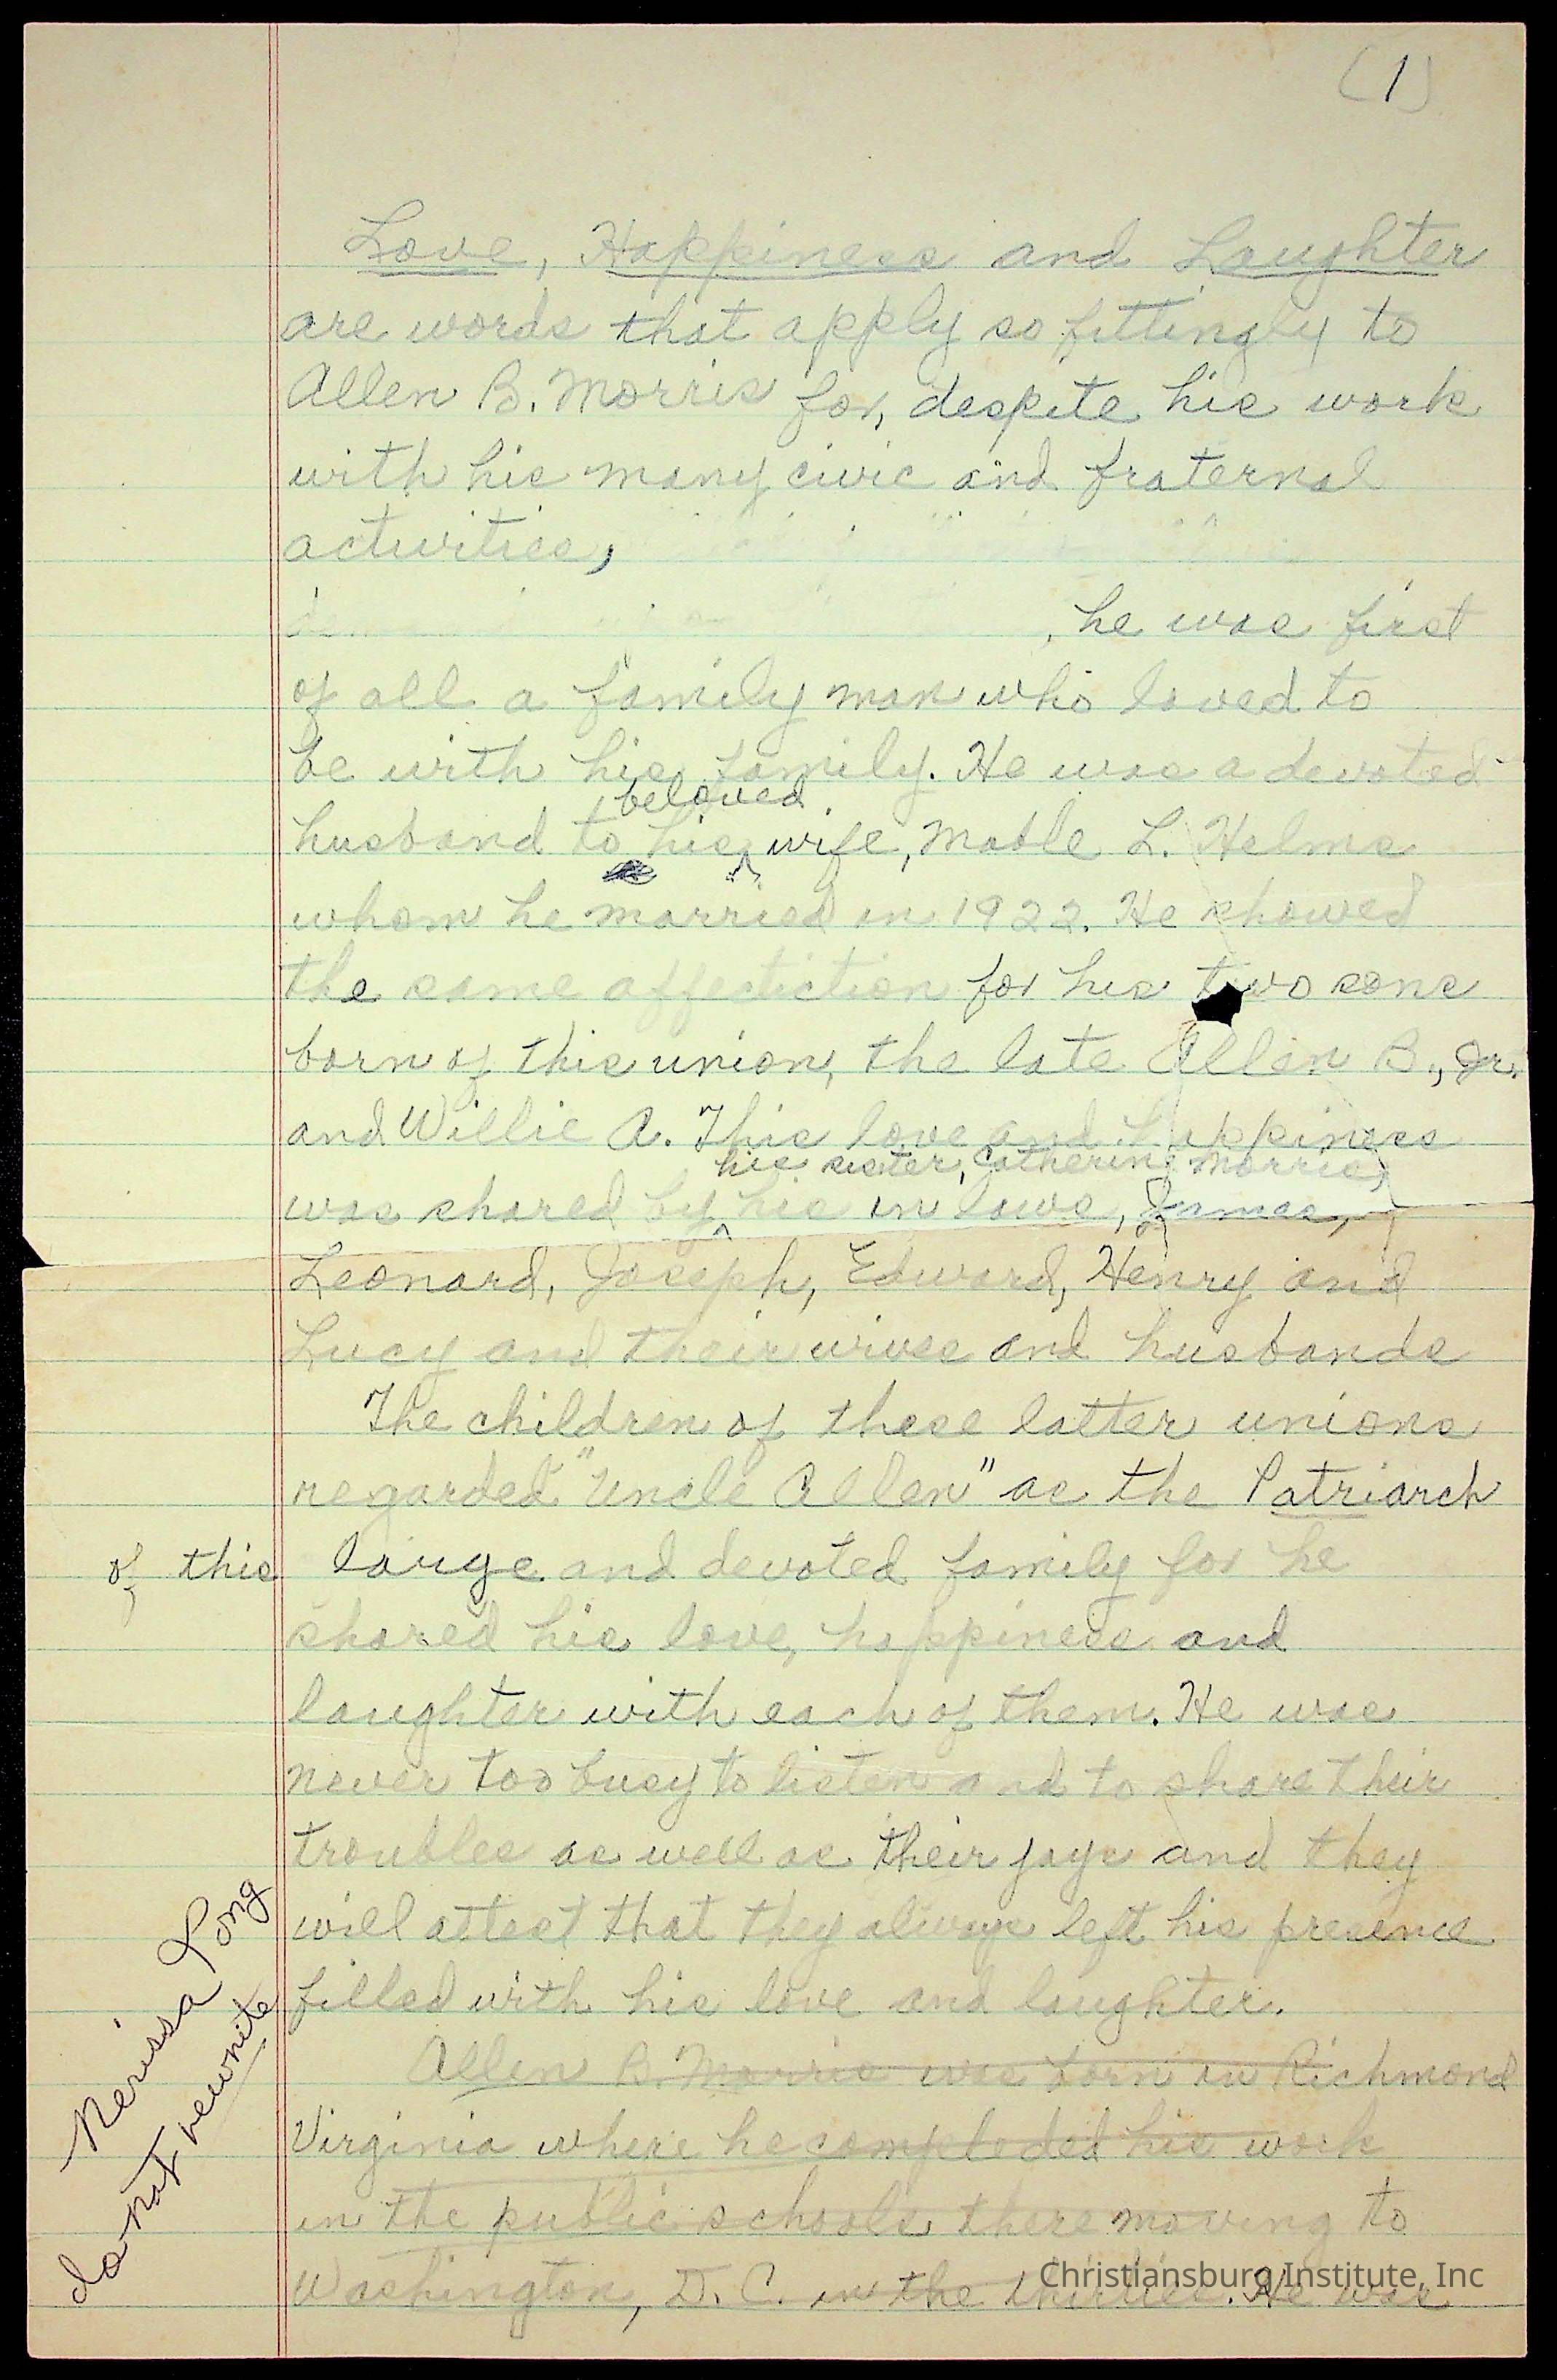 (1)
Love, Happiness and Laughter
are words that apply so fittingly to
Allen B. Morris for, despite his work
with his many civic and fraternal
activities,
, he was first
of all a family man who loved to
be with his family. He was a devoted
beloved
husband to his wife, Mable L. Helms
whom he married in 1922. He showed
the same affectiction for his two sons
born of this union, the late Allen B., Jr.
and Willie A. This love and happiness
his sister, Catherine Morris,
was shared by his in laws, James,
Leonard, Joseph, Edward, Henry and
Lucy and their wives and husbands
The children of these latter unions
regarded "Uncle Allen" as the Patriarch
of this large and devoted family for he
shared his love, happiness and
laughter with each of them. He was
never too busy to listen and to share their
troubles as well as their joys and they
will attest that they always left his presence
filled with his love and laughter.
Allen B. Morris was born in Richmond
Virginia where he compleded his work
in the public schools there moving to
Washington, D. C. in the thirties. He was
Nerissa Long
do not rewrite
Christiansburg Institute, Inc